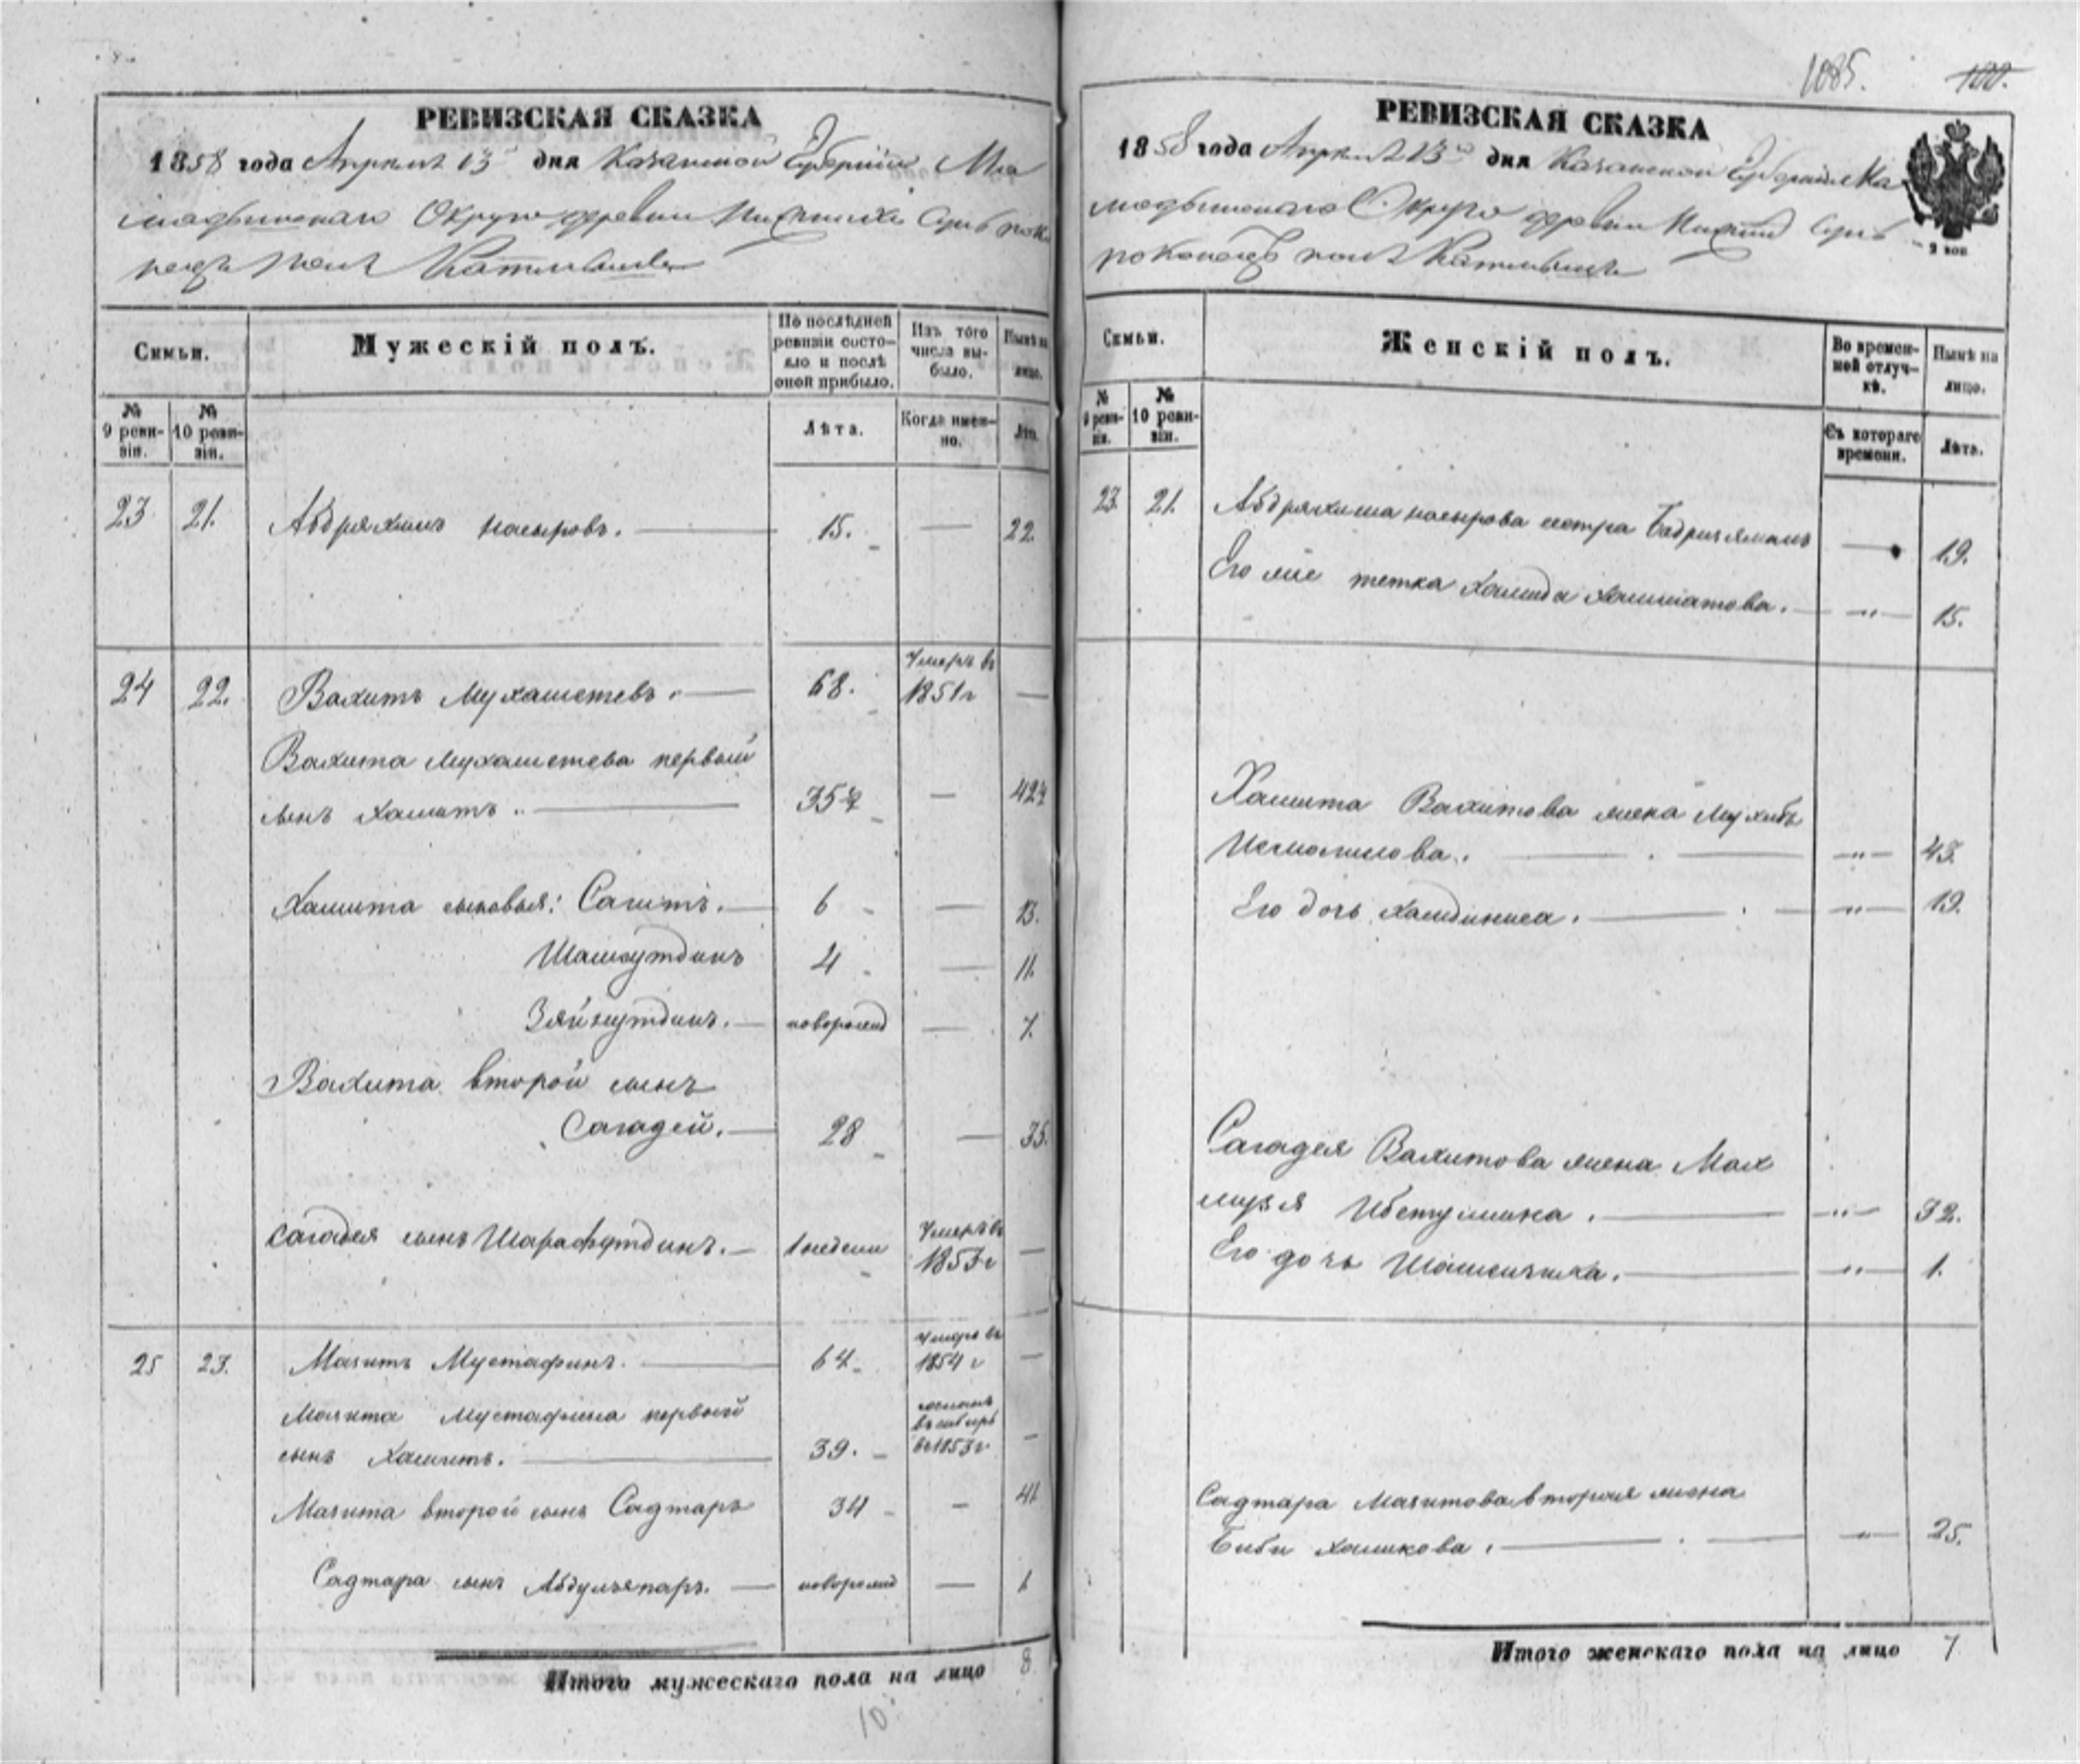 РЕВИЗСКАЯ СКАЗКА
1858 года Апреля 13 дня Казанской Губернии Ма
мадышскаго Округа деревни
Катмышъ
Семьи.
Мужескій полъ.
По послѣдней ревизіи состояло и послѣ оной прибыло.
Изъ того числа выбыло.
Нынѣ на лицо.
№ 9 ревизіи.
№ 10 ревизіи.
Лѣта.
Когда именно.
Лѣта.
23 21. Абдряхимъ Насыровъ. 15. — 22.
24 22. Вахитъ Мухаметевъ. 68. Умеръ въ 1851 г —
Вахита Мухаметева первый
сынъ Хамитъ. 35 — 42
Хамита сыновья: Сагитъ. 6 — 13.
Шамсутдинъ 4 — 11.
Зяйнутдинъ. новорожд — 7.
Вахита второй сынъ
Сагадей. 28 — 35.
Сагадея сынъ Шарафутдинъ. 1 недели Умеръ въ 1853 г —
25 23. Мазитъ Мустафинъ. 64 Умеръ въ 1854 г —
Мазита Мустафина первый
сынъ Хамитъ. 39. въ 1853 г —
Мазита второй сынъ Садтаръ 34 — 41
Садтара сынъ новорожд — 1
Итого мужескаго пола на лицо 8.
10.
1085. 100.
РЕВИЗСКАЯ СКАЗКА
1858 года Апреля 13 дня Казанской Губерніи Ма
мадышскаго Округа деревни
Катмышъ
2 коп
Семьи.
Женскій полъ.
Во временной отлучкѣ.
Нынѣ на лицо.
№ 9 ревизіи.
№ 10 ревизіи.
Съ котораго времени.
Лѣта.
23 21. Абдряхима Насырова сестра Бадризяманъ — 19.
Его же тетка Хамида — " — 15.
Хамита Вахитова жена
Исмаилова. — " — 43.
Его дочь — " — 19.
Сагадея Вахитова жена Мах
— " — 32.
Его дочь — " — 1.
Садтара Мазитова вторая жена
Биби — " — 25.
Итого женскаго пола на лицо 7